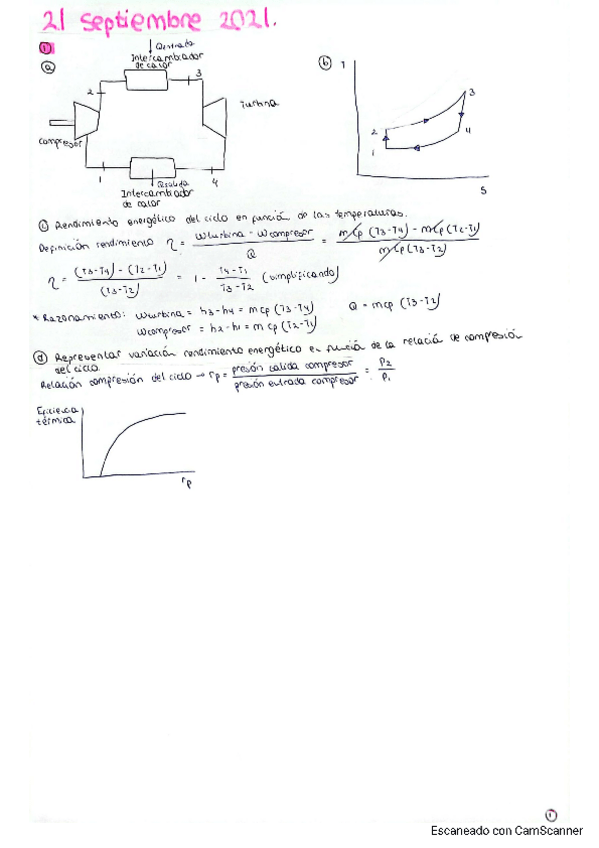 21 septiembre 2021.
①
ⓐ
Qentrada
Intercambiador
de calor
2
3
Turbina
compresor
1
Qsalida
4
Intercambiador
de calor
ⓑ T
3
2
4
1
S
ⓒ Rendimiento energético del ciclo en función de las temperaturas.
Definición rendimiento η = (Wturbina - Wcompresor) / Q = (mcp (T3-T4) - mcp (T2-T1)) / (mcp (T3-T2))
η = ((T3-T4) - (T2-T1)) / (T3-T2) = 1 - (T4-T1) / (T3-T2) (simplificando)
* Razonamiento: Wturbina = h3-h4 = mcp (T3-T4) Q = mcp (T3-T2)
Wcompresor = h2-h1 = mcp (T2-T1)
ⓓ Representar variación rendimiento energético en función de la relación de compresión
del ciclo.
Relación compresión del ciclo → rp = presión salida compresor / presión entrada compresor = P2 / P1
Eficiencia
térmica
rp
1
Escaneado con CamScanner